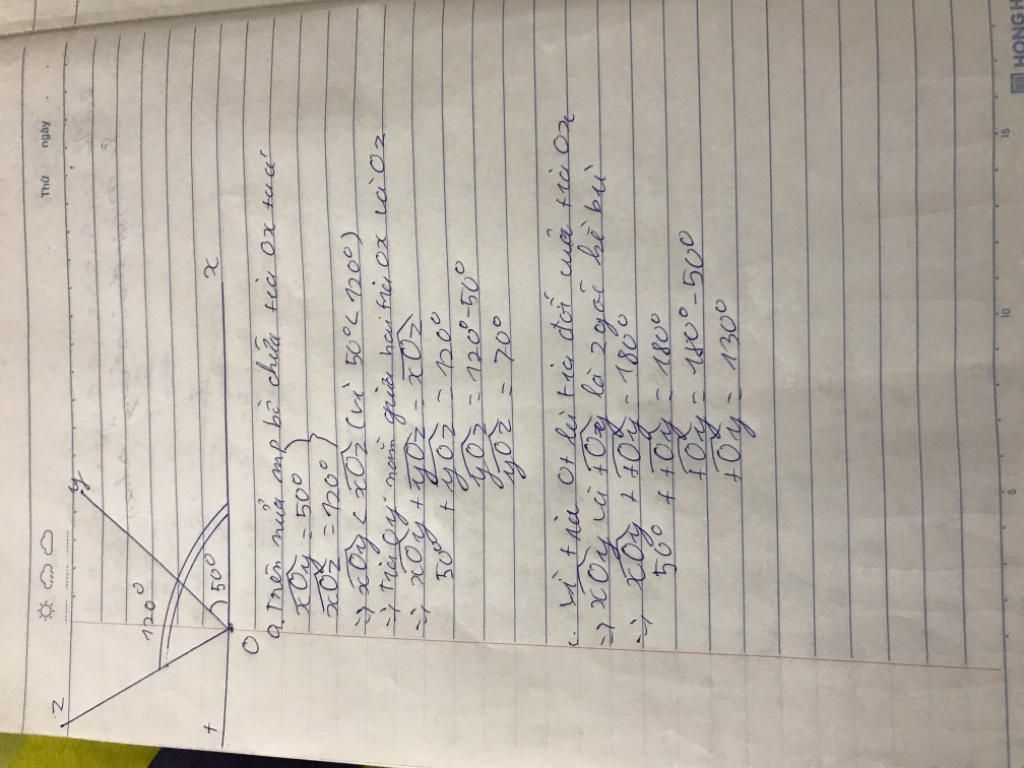 Thứ ngày
z
y
120°
50°
t
O
x
a. Trên nửa mp bờ chứa tia Ox ta có
xOy = 50°
xOz = 120°
=> xOy < xOz (vì 50° < 120°)
=> Tia Oy nằm giữa hai tia Ox và Oz
=> xOy + yOz = xOz
50° + yOz = 120°
yOz = 120° - 50°
yOz = 70°
c. Vì tia Ot là tia đối của tia Ox
=> xOy và tOy là 2 góc kề bù
=> xOy + tOy = 180°
50° + tOy = 180°
tOy = 180° - 50°
tOy = 130°
5
10
15
HONG H